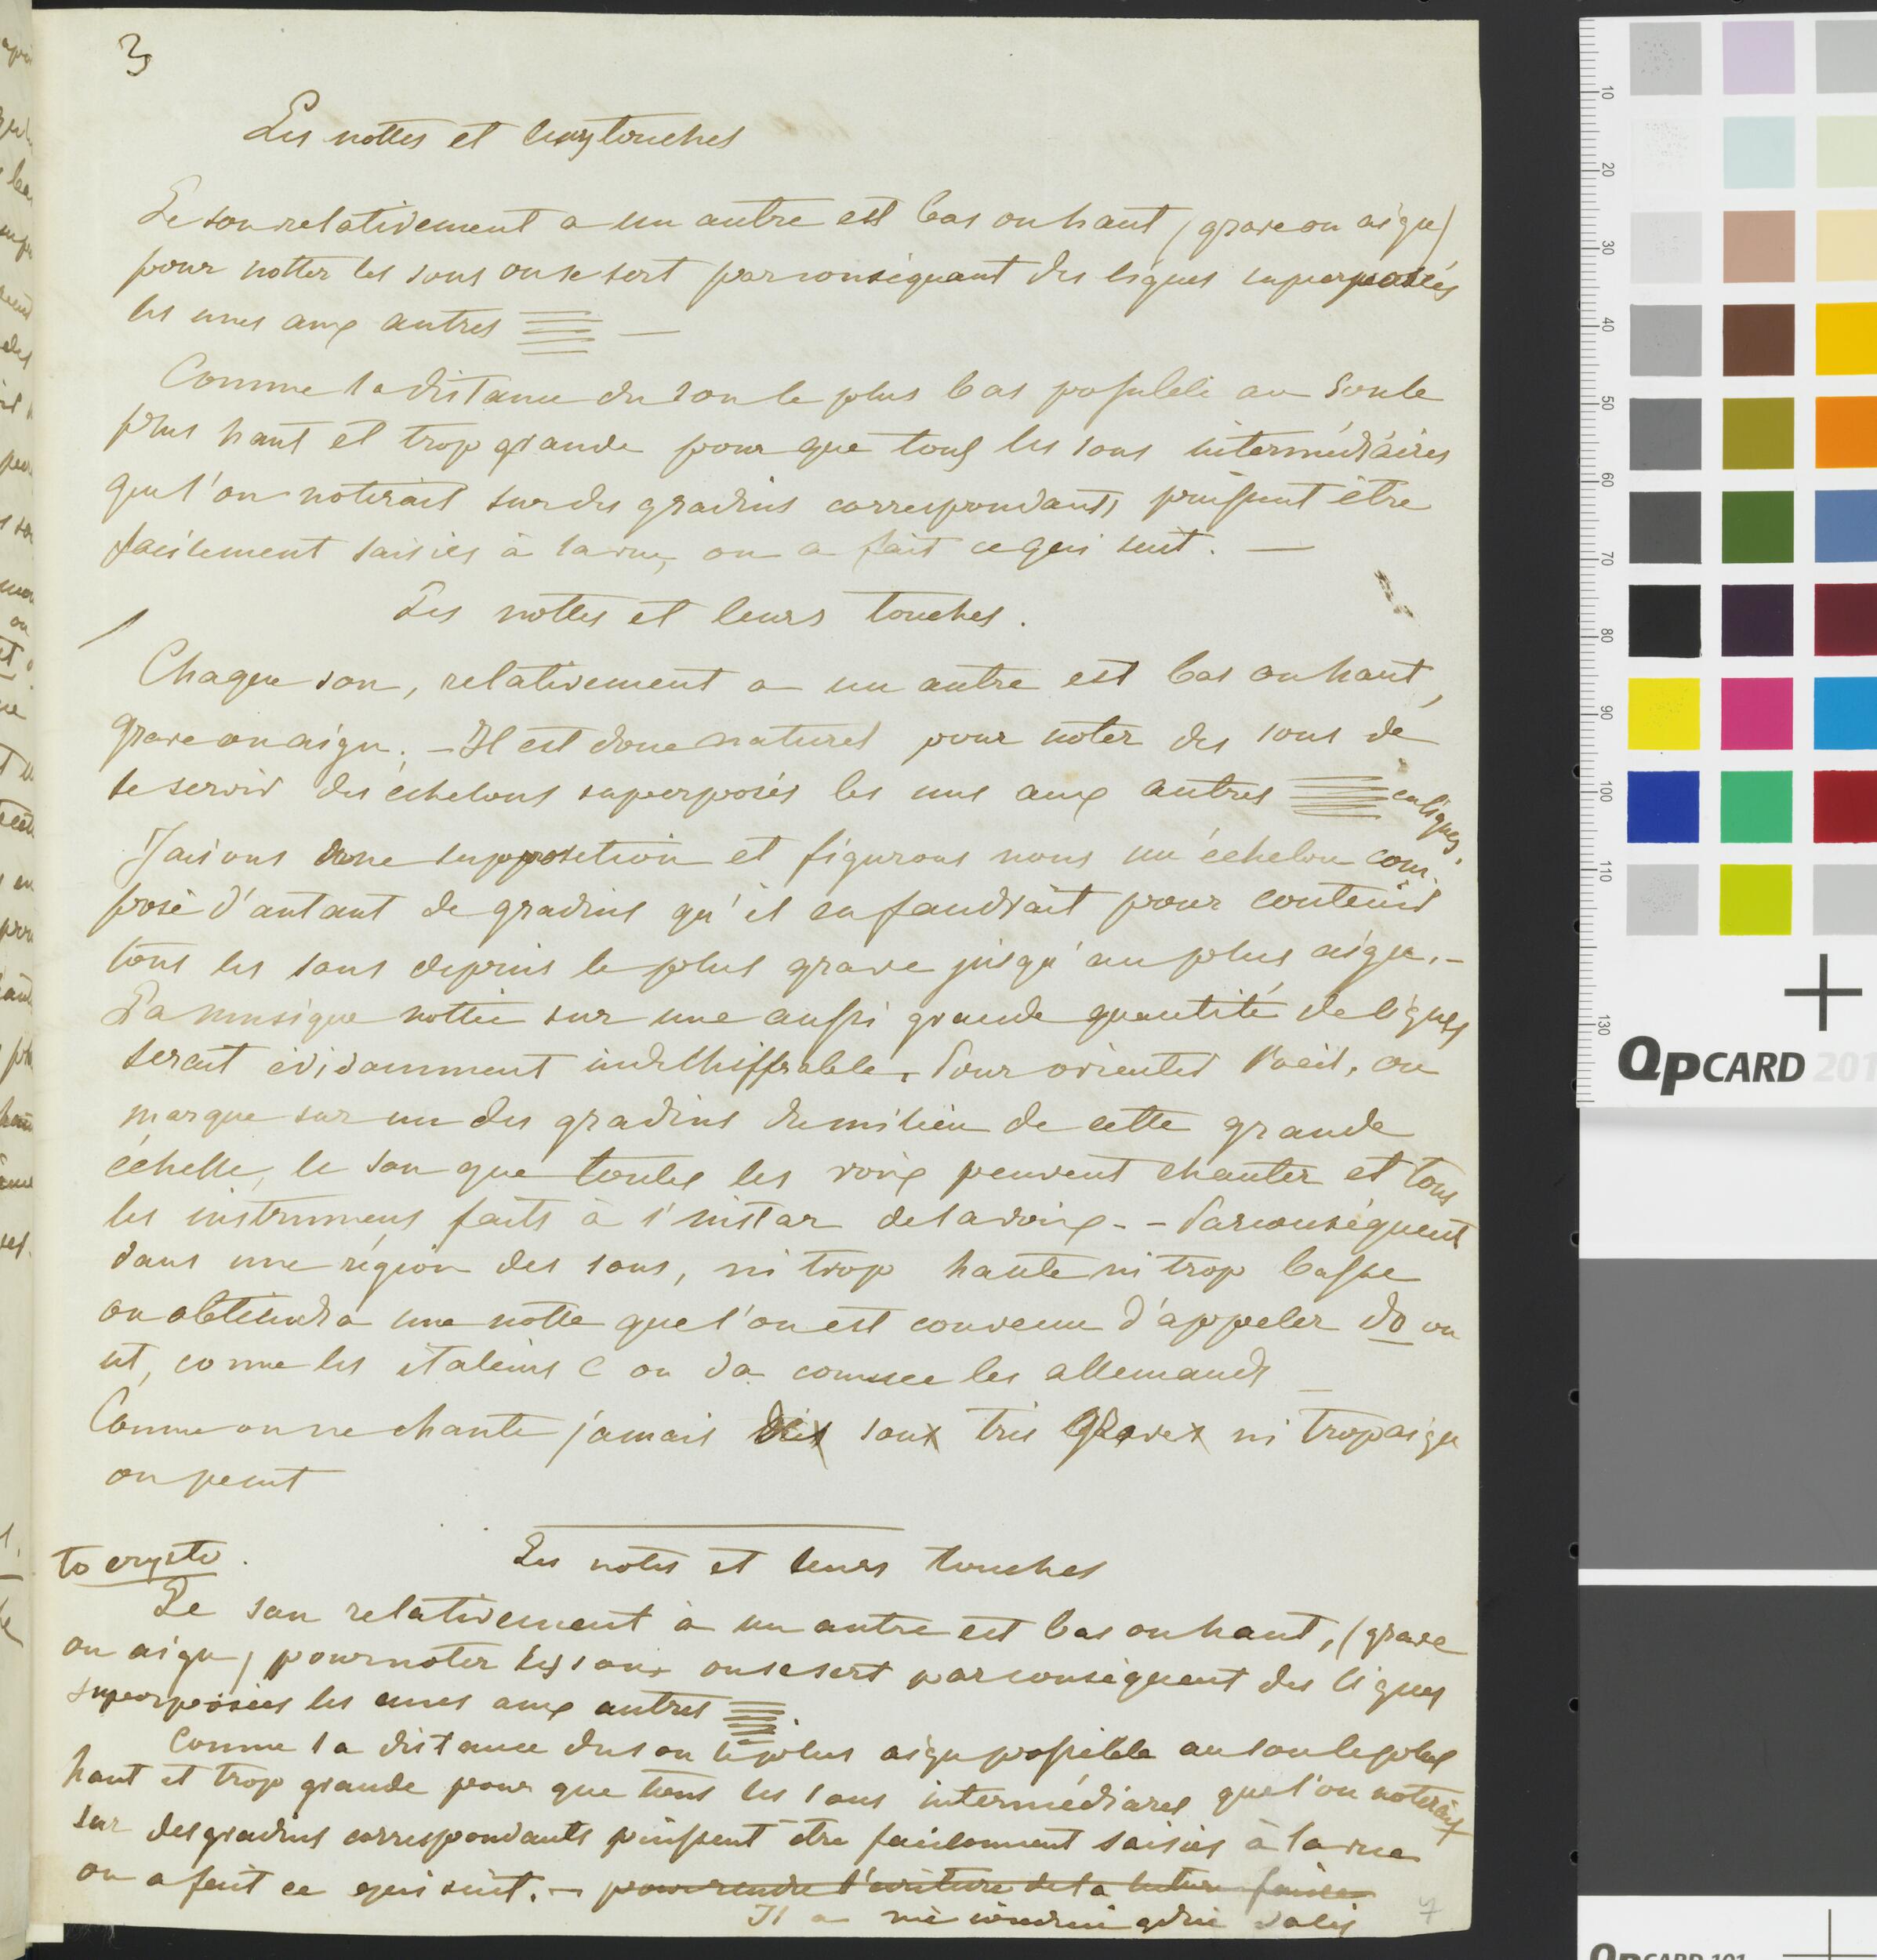 3
Les nottes et leurs touches
Le son relativement a un autre est bas ou haut (grave ou aigu)
pour notter les sons on se sert par conséquant des lignes superposées
les unes aux autres
Comme la distance du son le plus bas possible au son le
plus haut et trop grande pour que tous les sons intermédiaires
que l'on noterait sur des gradins correspondants puissent être
facilement saisies à la vue, on a fait ce qui suit. —
Les nottes et leurs touches.
Chaque son, relativement a un autre est bas ou haut,
grave ou aigu. — Il est donc naturel pour noter des sons de
se servir des échelons superposés les uns aux autres
en lignes.
Faisons donc supposition et figurons nous un échelon com-
posé d'autant de gradins qu'il en faudrait pour contenir
tous les sons depuis le plus grave jusqu'au plus aigu. —
La musique nottée sur une aussi grande quantité de lignes
serait évidamment indechiffrable. Pour orienter l'oeil, on
marque sur un des gradins du milieu de cette grande
échelle, le son que toutes les voix peuvent chanter et tous
les instrumens faits à l'instar de la voix. — Par conséquent
dans une région des sons, ni trop haute ni trop basse
on obtiendra une notte que l'on est convenu d'appeler do ou
ut, comme les italiens C ou da comme les allemands
Comme on ne chante jamais des sons très graves ni trop aigu
on peut
Les notes et leurs touches
to czysto.
Le son relativement à un autre est bas ou haut, (grave
ou aigu) pour noter les sons on se sert par conséquent des lignes
superposées les unes aux autres
Comme la distance du son le plus aigu possible au son le plus
haut et trop grande pour que tous les sons intermédiares que l'on noterait
sur des gradins correspondants puissent être facilement saisies à la vue
on a fait ce qui suit. — pour rendre l'écriture de la
Il a
7
10
20
30
40
50
60
70
80
90
100
110
130
QpCARD 201
QpCARD 101